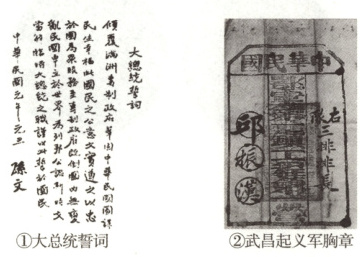 大總統誓詞
傾覆滿洲專制政府鞏固中華民國圖謀
民生幸福此國民之公意文實遵之以忠
於國為眾服務至專制政府既倒國內無變
亂民國卓立於世界為列邦公認斯時文
當解臨時大總統之職謹以此誓於國民
中華民國元年元旦 孫文
①大总统誓词
中華民國
右隊三排排長
邱振漢
②武昌起义军胸章